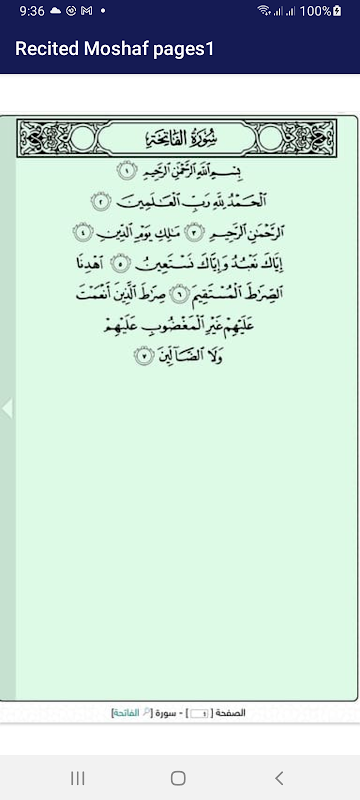 9:36
100%
Recited Moshaf pages1
سُورَةُ الفَاتِحَةِ
بِسْمِ اللَّهِ الرَّحْمَٰنِ الرَّحِيمِ ١
الْحَمْدُ لِلَّهِ رَبِّ الْعَالَمِينَ ٢
الرَّحْمَٰنِ الرَّحِيمِ ٣ مَالِكِ يَوْمِ الدِّينِ ٤
إِيَّاكَ نَعْبُدُ وَإِيَّاكَ نَسْتَعِينُ ٥ اهْدِنَا
الصِّرَاطَ الْمُسْتَقِيمَ ٦ صِرَاطَ الَّذِينَ أَنْعَمْتَ
عَلَيْهِمْ غَيْرِ الْمَغْضُوبِ عَلَيْهِمْ
وَلَا الضَّالِّينَ ٧
الصفحة [ ١ ] - سورة [الفاتحة]